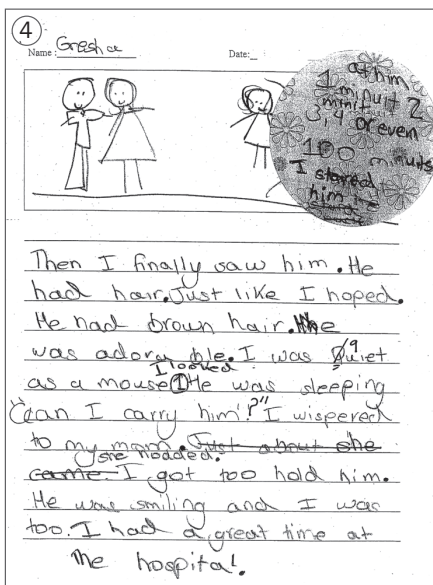 4
Name: Gresha
Date:
at him
1 minuit 2
minit
3, 4 or even
100
minuts
I stared
him
Then I finally saw him. He
had hair. Just like I hoped.
He had brown hair. He
was adorable. I was quiet
I looked
as a mouse 1 He was sleeping
"Can I carry him?" I wispered
to my mom. Just about she
she nodded.
came. I got too hold him.
He was smiling and I was
too. I had a great time at
the hospital.